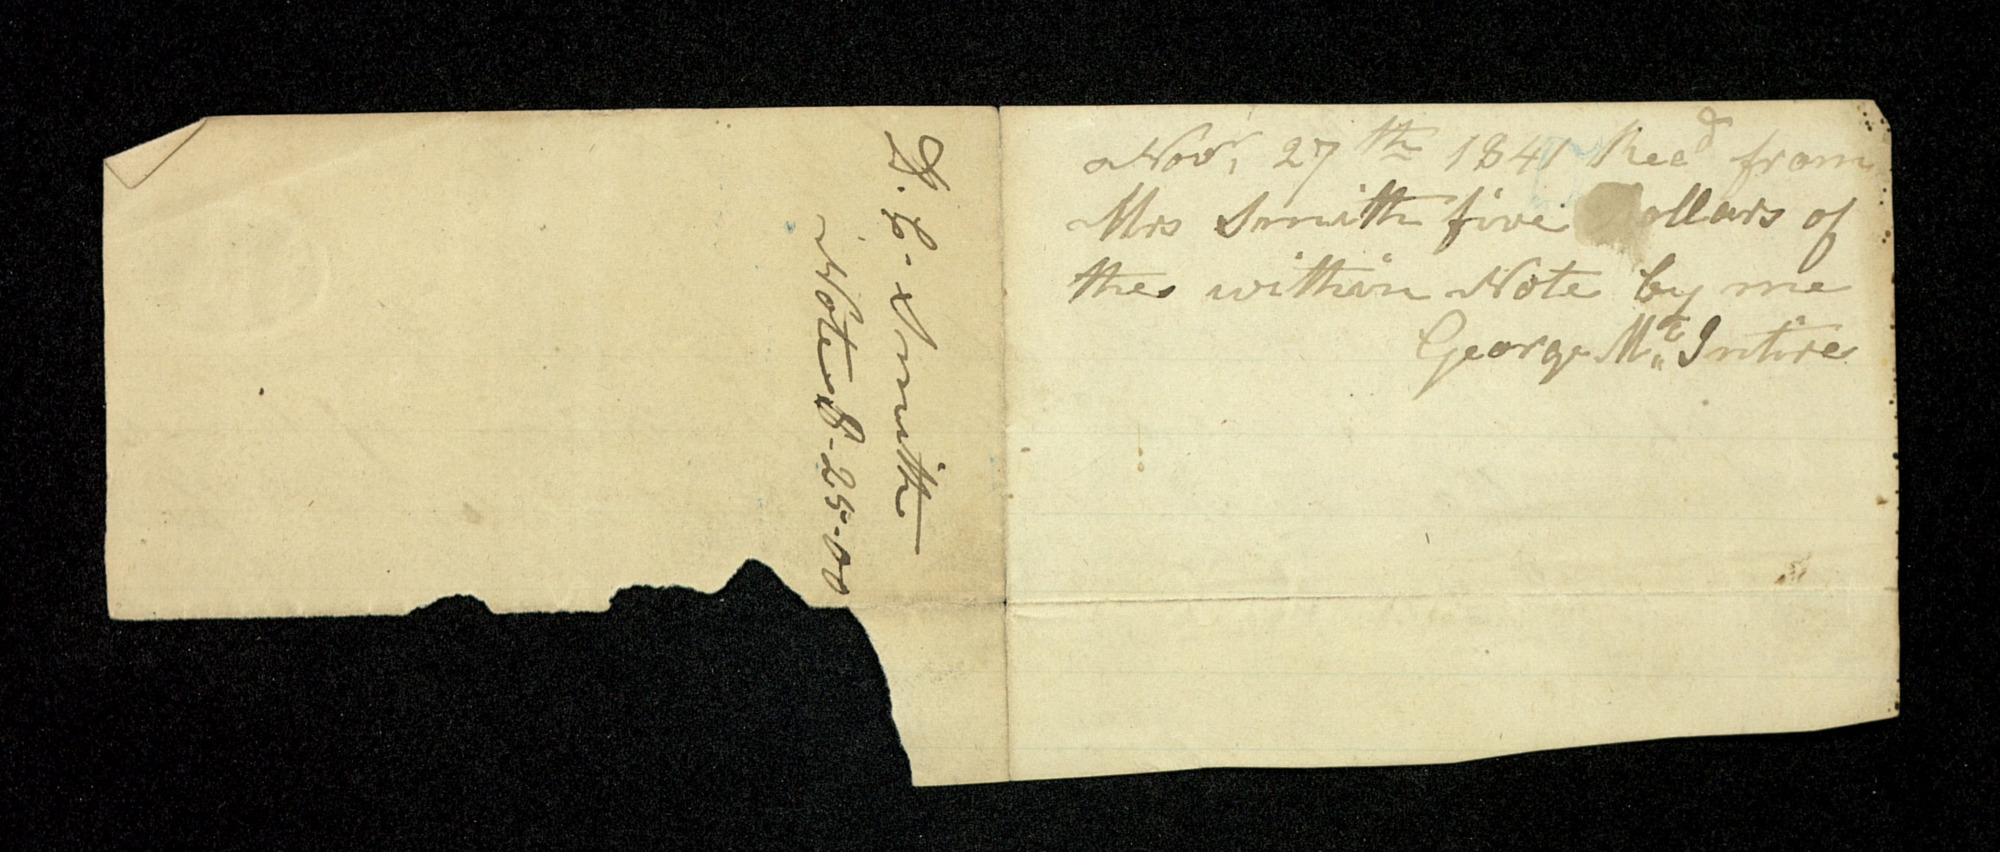 D. C. Smith
Note $-25-00
Novr, 27th 1841 Recd from
Mrs Smith five dollars of
the within Note by me
George Mc Intire